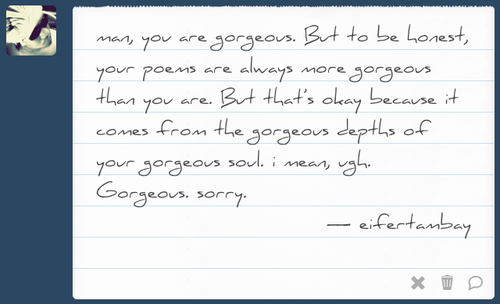 man, you are gorgeous. But to be honest,
your poems are always more gorgeous
than you are. But that's okay because it
comes from the gorgeous depths of
your gorgeous soul. i mean, ugh.
Gorgeous. sorry.
— eifertambay